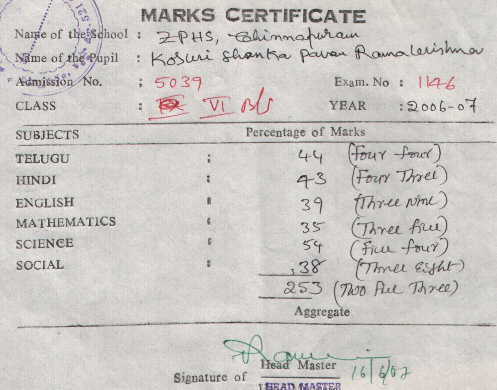 MARKS CERTIFICATE
Name of the School : ZPHS, Chinnapuram
Name of the Pupil : Kosuri Shanka Pavan Ramakrishna
Admission No. : 5039 Exam. No : 1146
CLASS : VI B/S YEAR : 2006-07
SUBJECTS Percentage of Marks
TELUGU : 44 (Four four)
HINDI : 43 (Four Three)
ENGLISH : 39 (Three Nine)
MATHEMATICS : 35 (Three five)
SCIENCE : 54 (Five four)
SOCIAL : 38 (Three Eight)
253 (Two five Three)
Aggregate
Signature of Head Master 16/6/07
HEAD MASTER